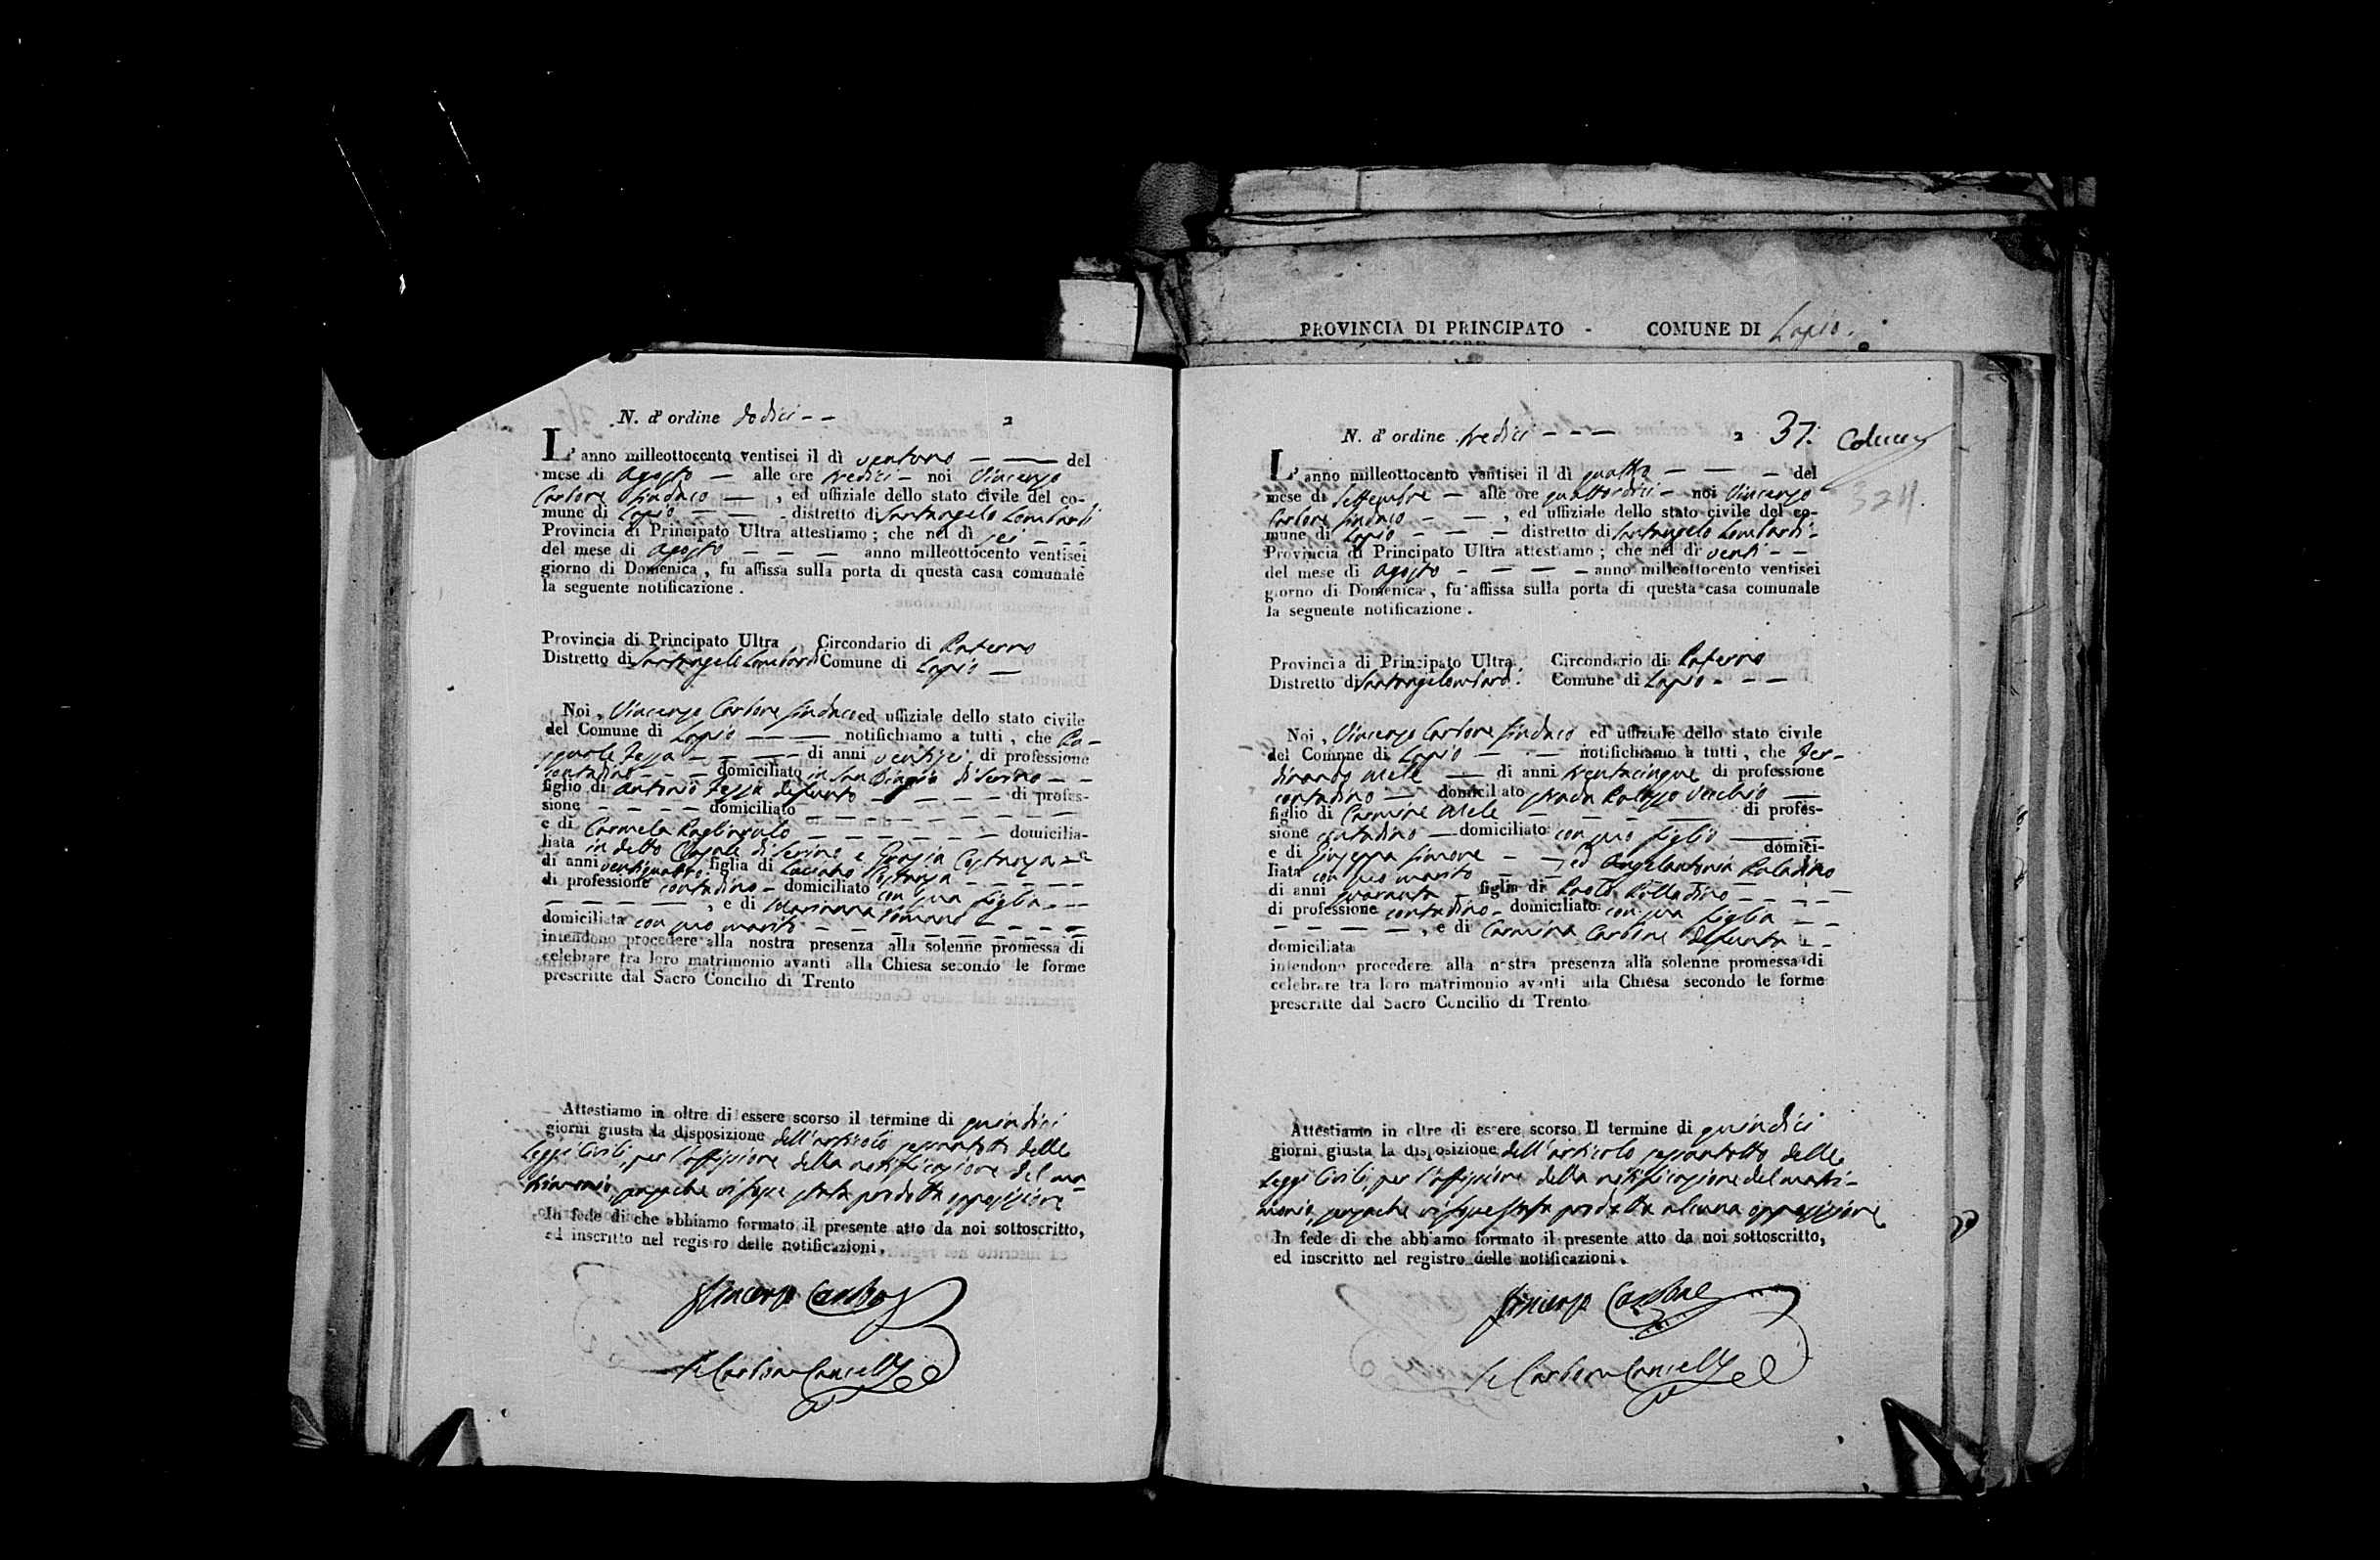 PROVINCIA DI PRINCIPATO - COMUNE DI Lapio.
N. d'ordine dodici - -
2
L'anno milleottocento ventisei il dì ventuno — — del
mese di Agosto — alle ore tredici - noi Vincenzo
Carbone Sindaco — , ed uffiziale dello stato civile del co-
mune di Lapio — — distretto di Santangelo Lombardi
Provincia di Principato Ultra attestiamo ; che nel dì sei - - -
del mese di Agosto - - - anno milleottocento ventisei
giorno di Domenica , fu affissa sulla porta di questa casa comunale
la seguente notificazione .
Provincia di Principato Ultra Circondario di Paterno
Distretto di Santangelo Lombardi Comune di Lapio —
Noi , Vincenzo Carbone Sindaco ed uffiziale dello stato civile
del Comune di Lapio — — notifichiamo a tutti , che Pa-
squale - - - di anni ventisei di professione
contadino - - - domiciliato in San Biagio di Serino - -
figlio di Antonio defunto - - - - di profes-
sione - - - - domiciliato - - - - - - - -
e di Carmela - - - - - domicilia-
liata in detto Casale di Serino e Grazia Costanza
di anni ventiquattro figlia di Luciano Costanza - - - - -
di professione contadino - domiciliato con sua figlia - - -
- - - - - , e di Marianna Romano - - - -
domiciliata con suo marito - - - - - - - -
intendono procedere alla nostra presenza alla solenne promessa di
celebrare tra loro matrimonio avanti alla Chiesa secondo le forme
prescritte dal Sacro Concilio di Trento
Attestiamo in oltre di essere scorso il termine di quindici
giorni giusta la disposizione dell'articolo sessantotto delle
Leggi Civili, per l'affissione della notificazione del ma-
trimonio, senzache vi fosse stata prodotta opposizione
In fede di che abbiamo formato il presente atto da noi sottoscritto,
ed inscritto nel registro delle notificazioni .
Vincenzo Carbone
Carbone Cancell
N. d'ordine tredici - - —
2 37.
L'anno milleottocento ventisei il dì quattro — — — del
mese di Settembre — alle ore quattordici - noi Vincenzo
Carbone Sindaco - — , ed uffiziale dello stato civile del co-
mune di Lapio - — — distretto di Santangelo Lombardi -
Provincia di Principato Ultra attestiamo ; che nel dì venti - -
del mese di Agosto - — — — anno milleottocento ventisei
giorno di Domenica , fu affissa sulla porta di questa casa comunale
la seguente notificazione .
Provincia di Principato Ultra. Circondario di Paterno
Distretto di Santangelo Lombardi. Comune di Lapio - - —
Noi , Vincenzo Carbone Sindaco ed uffiziale dello stato civile
del Comune di Lapio — - — notifichiamo a tutti , che Fer-
dinando Mele — di anni trentacinque di professione
contadino — domiciliato strada Palazzo Vecchio —
figlio di Carmine Mele — - - — di profes-
sione contadino — domiciliato con suo figlio — —
e di Giuseppa Simone - — domici-
liata con suo marito - — ed Angelantonia Paladino
di anni quaranta - figlia di Paolo Palladino — - —
di professione contadino - domiciliato con sua figlia — -
- — — — , e di Carmina Carbone defunta - -
domiciliata
intendono procedere alla nostra presenza alla solenne promessa di
celebrare tra loro matrimonio avanti alla Chiesa secondo le forme
prescritte dal Sacro Concilio di Trento
Attestiamo in oltre di essere scorso Il termine di quindici
giorni giusta la disposizione dell'articolo sessantotto delle
Leggi Civili, per l'affissione della notificazione del matri-
monio, senzache vi fosse stata prodotta alcuna opposizione
In fede di che abbiamo formato il presente atto da noi sottoscritto,
ed inscritto nel registro delle notificazioni .
Vincenzo Carbone
Carbone Cancell